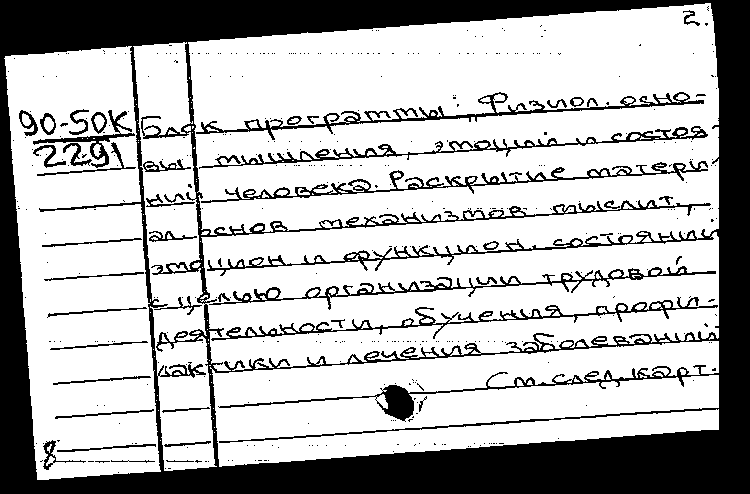 2.
90-50К Блок программы: „Физиол. осно-
2291 вы мышления, эмоций и состоя-
ний человека. Раскрытие матери-
ал. основ механизмов мыслит.,
эмоцион. и функцион. состояний
с целью организации трудовой
деятельности, обучения, профи-
лактики и лечения заболеваний
См. след. карт.
8